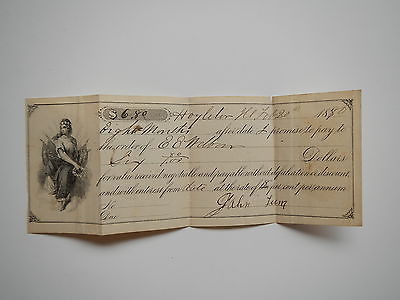 $6.80 Hoyleton Ill. Feb 20 1880
Eight Months after date I promise to pay to
the order of E E Welborn
Six Dollars
for value received, negotiable and payable without defalcation or discount
and with interest from date at the rate of Ten per cent per annum
No John
Due